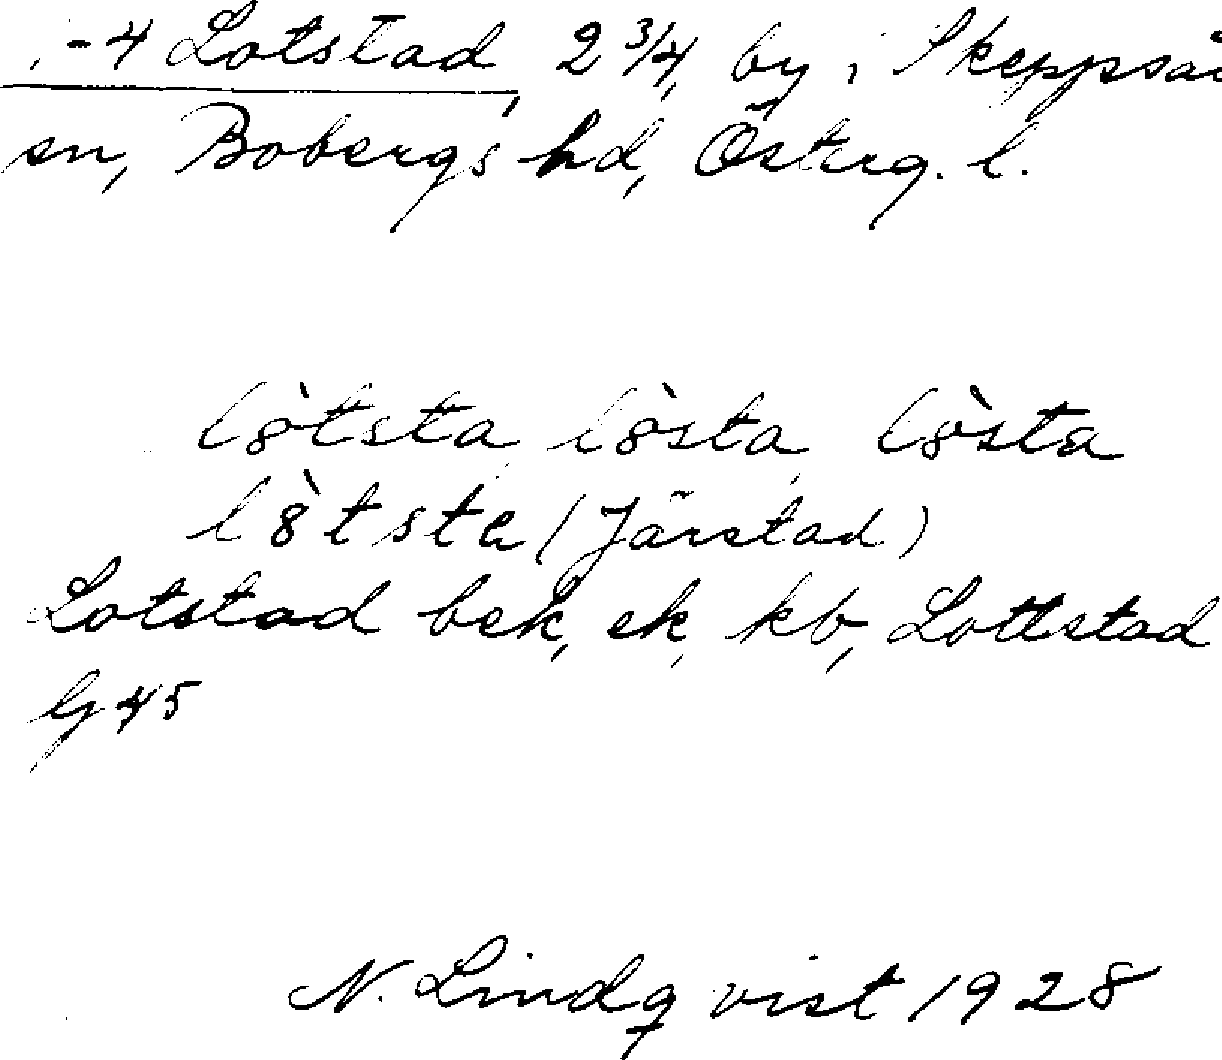 1-4 Lotstad, 2 3/4, by i Skeppsås
sn, Bobergs hd, Österg. l.
lòtsta, lòsta, lòsta
lòtsta (Järstad)
Lotstad bek, ek, kb, Lottstad
G 45
N. Lindqvist 1928